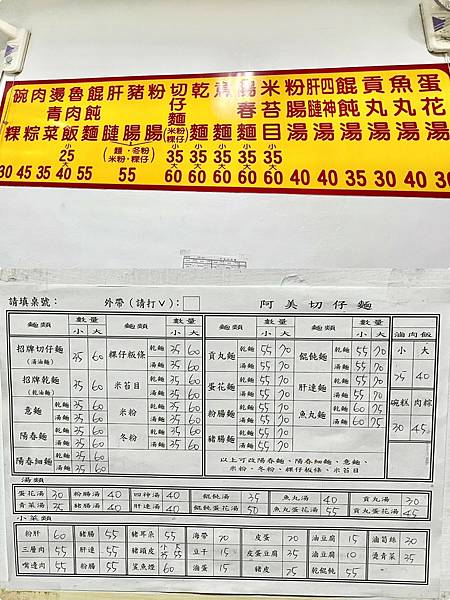 碗粿 肉粽 燙青菜 魯肉飯 餛飩麵 肝腱 豬腸 粉腸 切仔麵(米粉粿仔) 乾麵 意麵 陽春麵 米苔目 粉腸湯 肝腱湯 四神湯 餛飩湯 貢丸湯 魚丸湯 蛋花湯
(麵·冬粉 米粉·粿仔)
小 25 大 小 35 大 小 35 大 小 35 大 小 35 大 小 35 大
30 45 35 40 55 55 60 60 60 60 60 40 40 35 30 40 30
請填桌號： 外帶（請打V）： 阿美切仔麵
麵類 數量 小 大 麵類 數量 小 大
招牌切仔麵(湯油麵) 35 60
招牌乾麵 35 60
意麵 乾麵 35 60 湯麵 35 60
陽春麵 乾麵 35 60 湯麵 35 60
陽春細麵 乾麵 35 60 湯麵 35 60
粿仔板條 乾麵 35 60 湯麵 35 60
米苔目 乾麵 35 60 湯麵 35 60
米粉 乾麵 35 60 湯麵 35 60
冬粉 乾麵 35 60 湯麵 35 60
麵類 數量 小 大 麵類 數量 小 大
貢丸麵 乾麵 55 70 湯麵 55 70
蛋花麵 乾麵 55 70 湯麵 55 70
粉腸麵 乾麵 55 70 湯麵 55 70
豬腸麵 乾麵 55 70 湯麵 55 70
餛飩麵 乾麵 55 70 湯麵 55 70
肝連麵 乾麵 55 70 湯麵 55 70
魚丸麵 乾麵 60 75 湯麵 60 75
以上可改陽春麵、陽春細麵、意麵、
米粉、冬粉、粿仔板條、米苔目
滷肉飯
小 大
25 40
碗粿 肉粽
30 45
湯類
蛋花湯 30 粉腸湯 40 四神湯 40 餛飩湯 35 魚丸湯 40 貢丸湯 30
青菜湯 35 豬腸湯 40 肝連湯 40 餛飩蛋花湯 50 魚丸蛋花湯 55 貢丸蛋花湯 45
小菜類
粉肝 60 豬腸 55 豬耳朵 55 海帶 20 皮蛋 20 油豆腐 15 滷筍絲 30
三層肉 55 肝連 55 豬頭皮 小 35 大 55 豆干 15 皮蛋豆腐 35 滷豆腐 10 燙青菜 35
嘴邊肉 55 粉腸 55 鯊魚煙 60 滷蛋 15 豬皮 25 乾餛飩 55